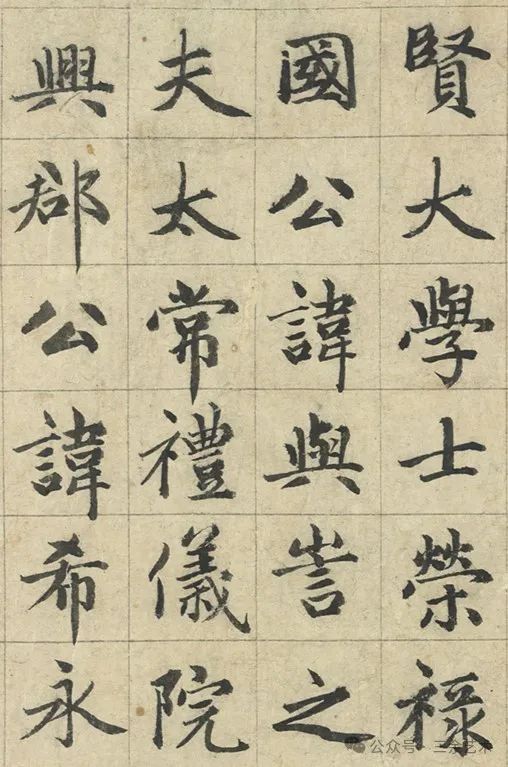 賢大學士榮祿
國公諱與訔之
夫太常禮儀院
興郡公諱希永
公众号·三余艺术